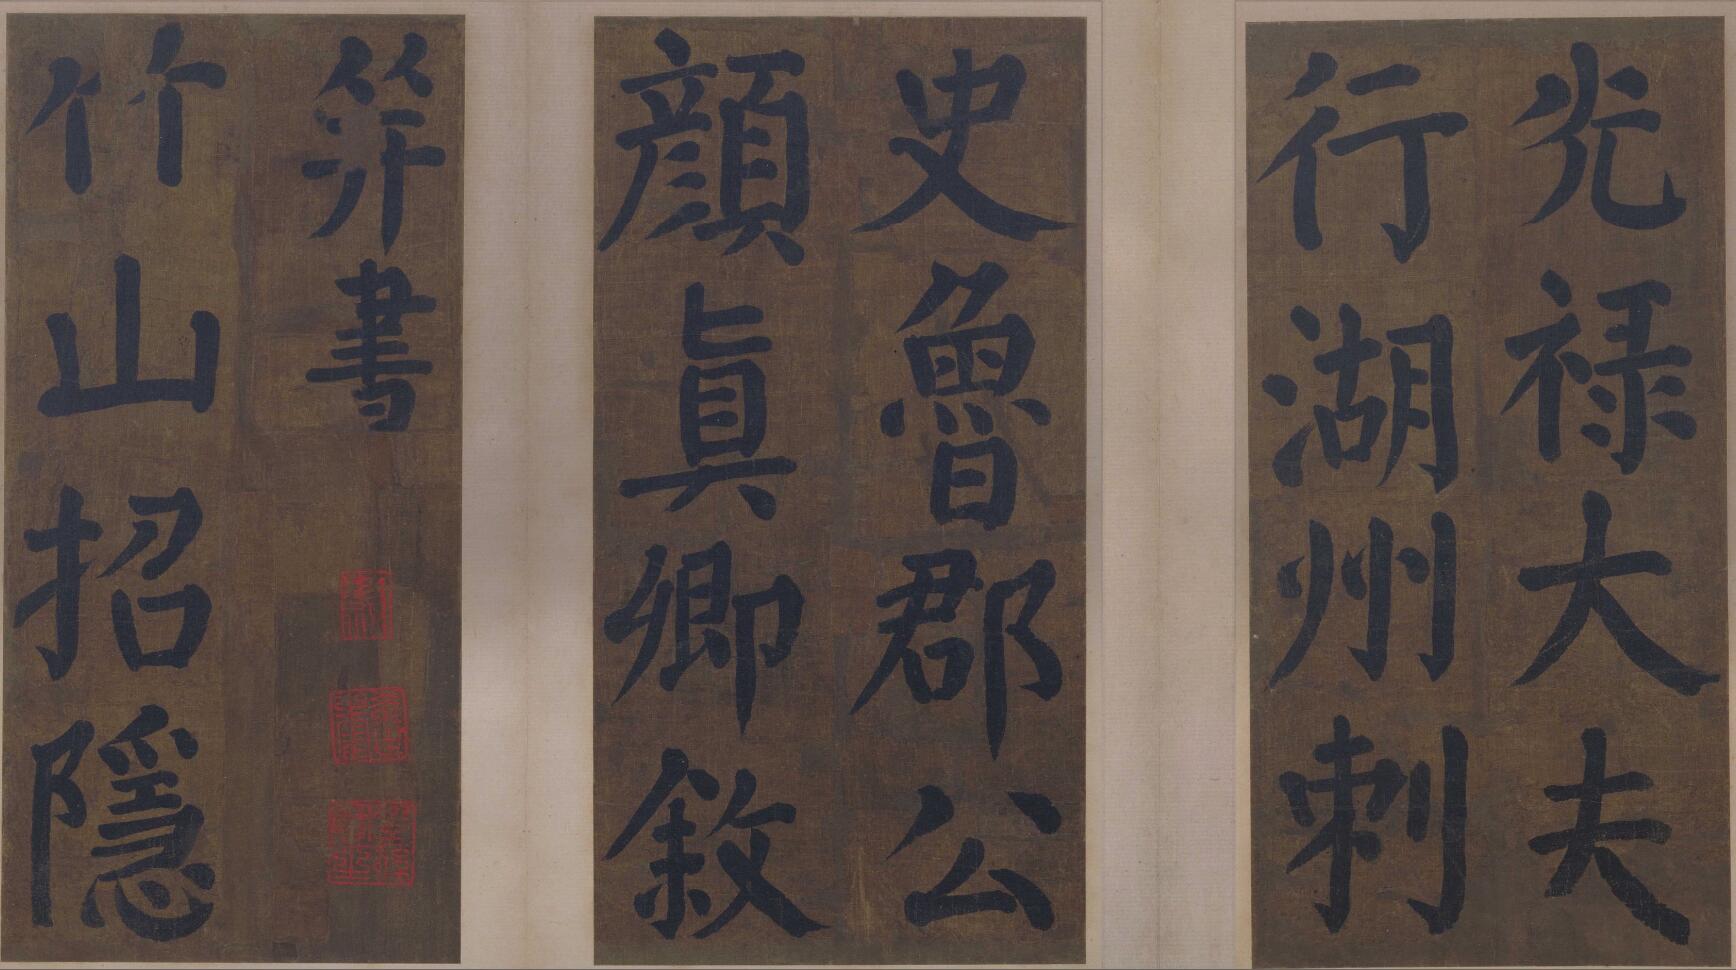 光禄大夫
行湖州刺
史魯郡公
顔真卿敘
并書
竹山招隱